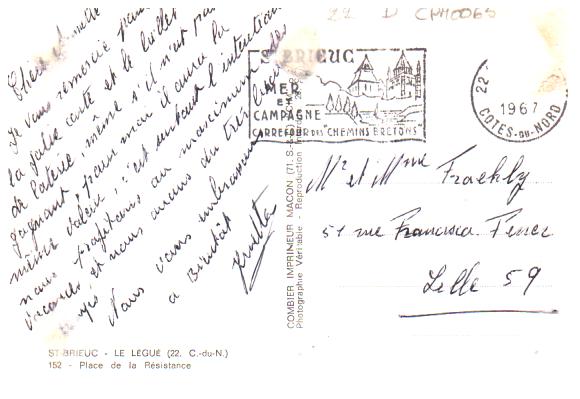 22 D CPH0065
Chère
Je vous remercie pour
la jolie carte et le billet
de loterie, même s'il n'est pas
gagnant, pour moi il aura la
même valeur, c'est surtout l'intention
nous profitons au maximum des
vacances et nous avons du très beau
Nous vous embrassons
à Bientôt
ST-BRIEUC
MER
ET
CAMPAGNE
CARREFOUR DES "CHEMINS BRETONS"
22
1967
COTES-DU-NORD
Mr et Mme Fraehly
51 rue Francisco Ferrer
Lille 59
COMBIER IMPRIMEUR MACON (71, S.-&-L.)
Photographie Véritable - Reproduction
ST-BRIEUC - LE LÉGUÉ (22. C.-du-N.)
152 - Place de la Résistance